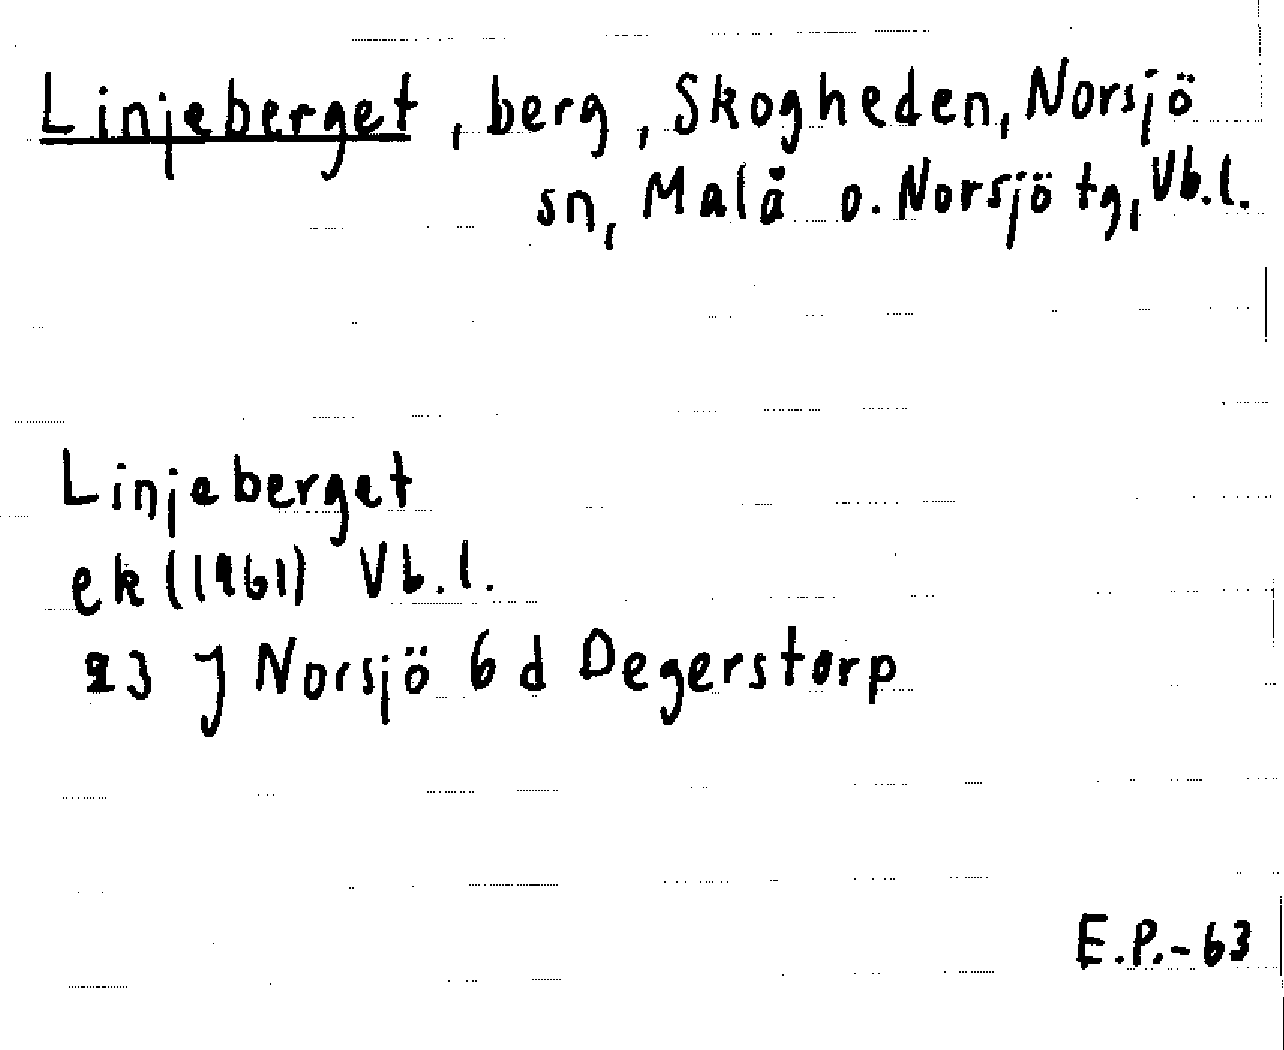 Linjeberget, berg, Skogheden, Norsjö
sn, Malå o. Norsjö tg, Vb.l.
Linjeberget
ek (1961) Vb.l.
23 J Norsjö 6 d Degerstorp
E.P.-63